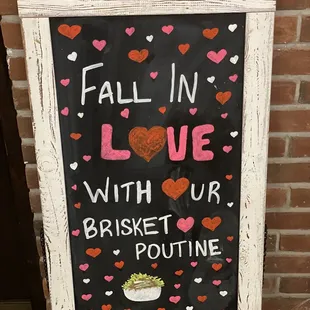 FALL IN
LOVE
WITH OUR
BRISKET
POUTINE